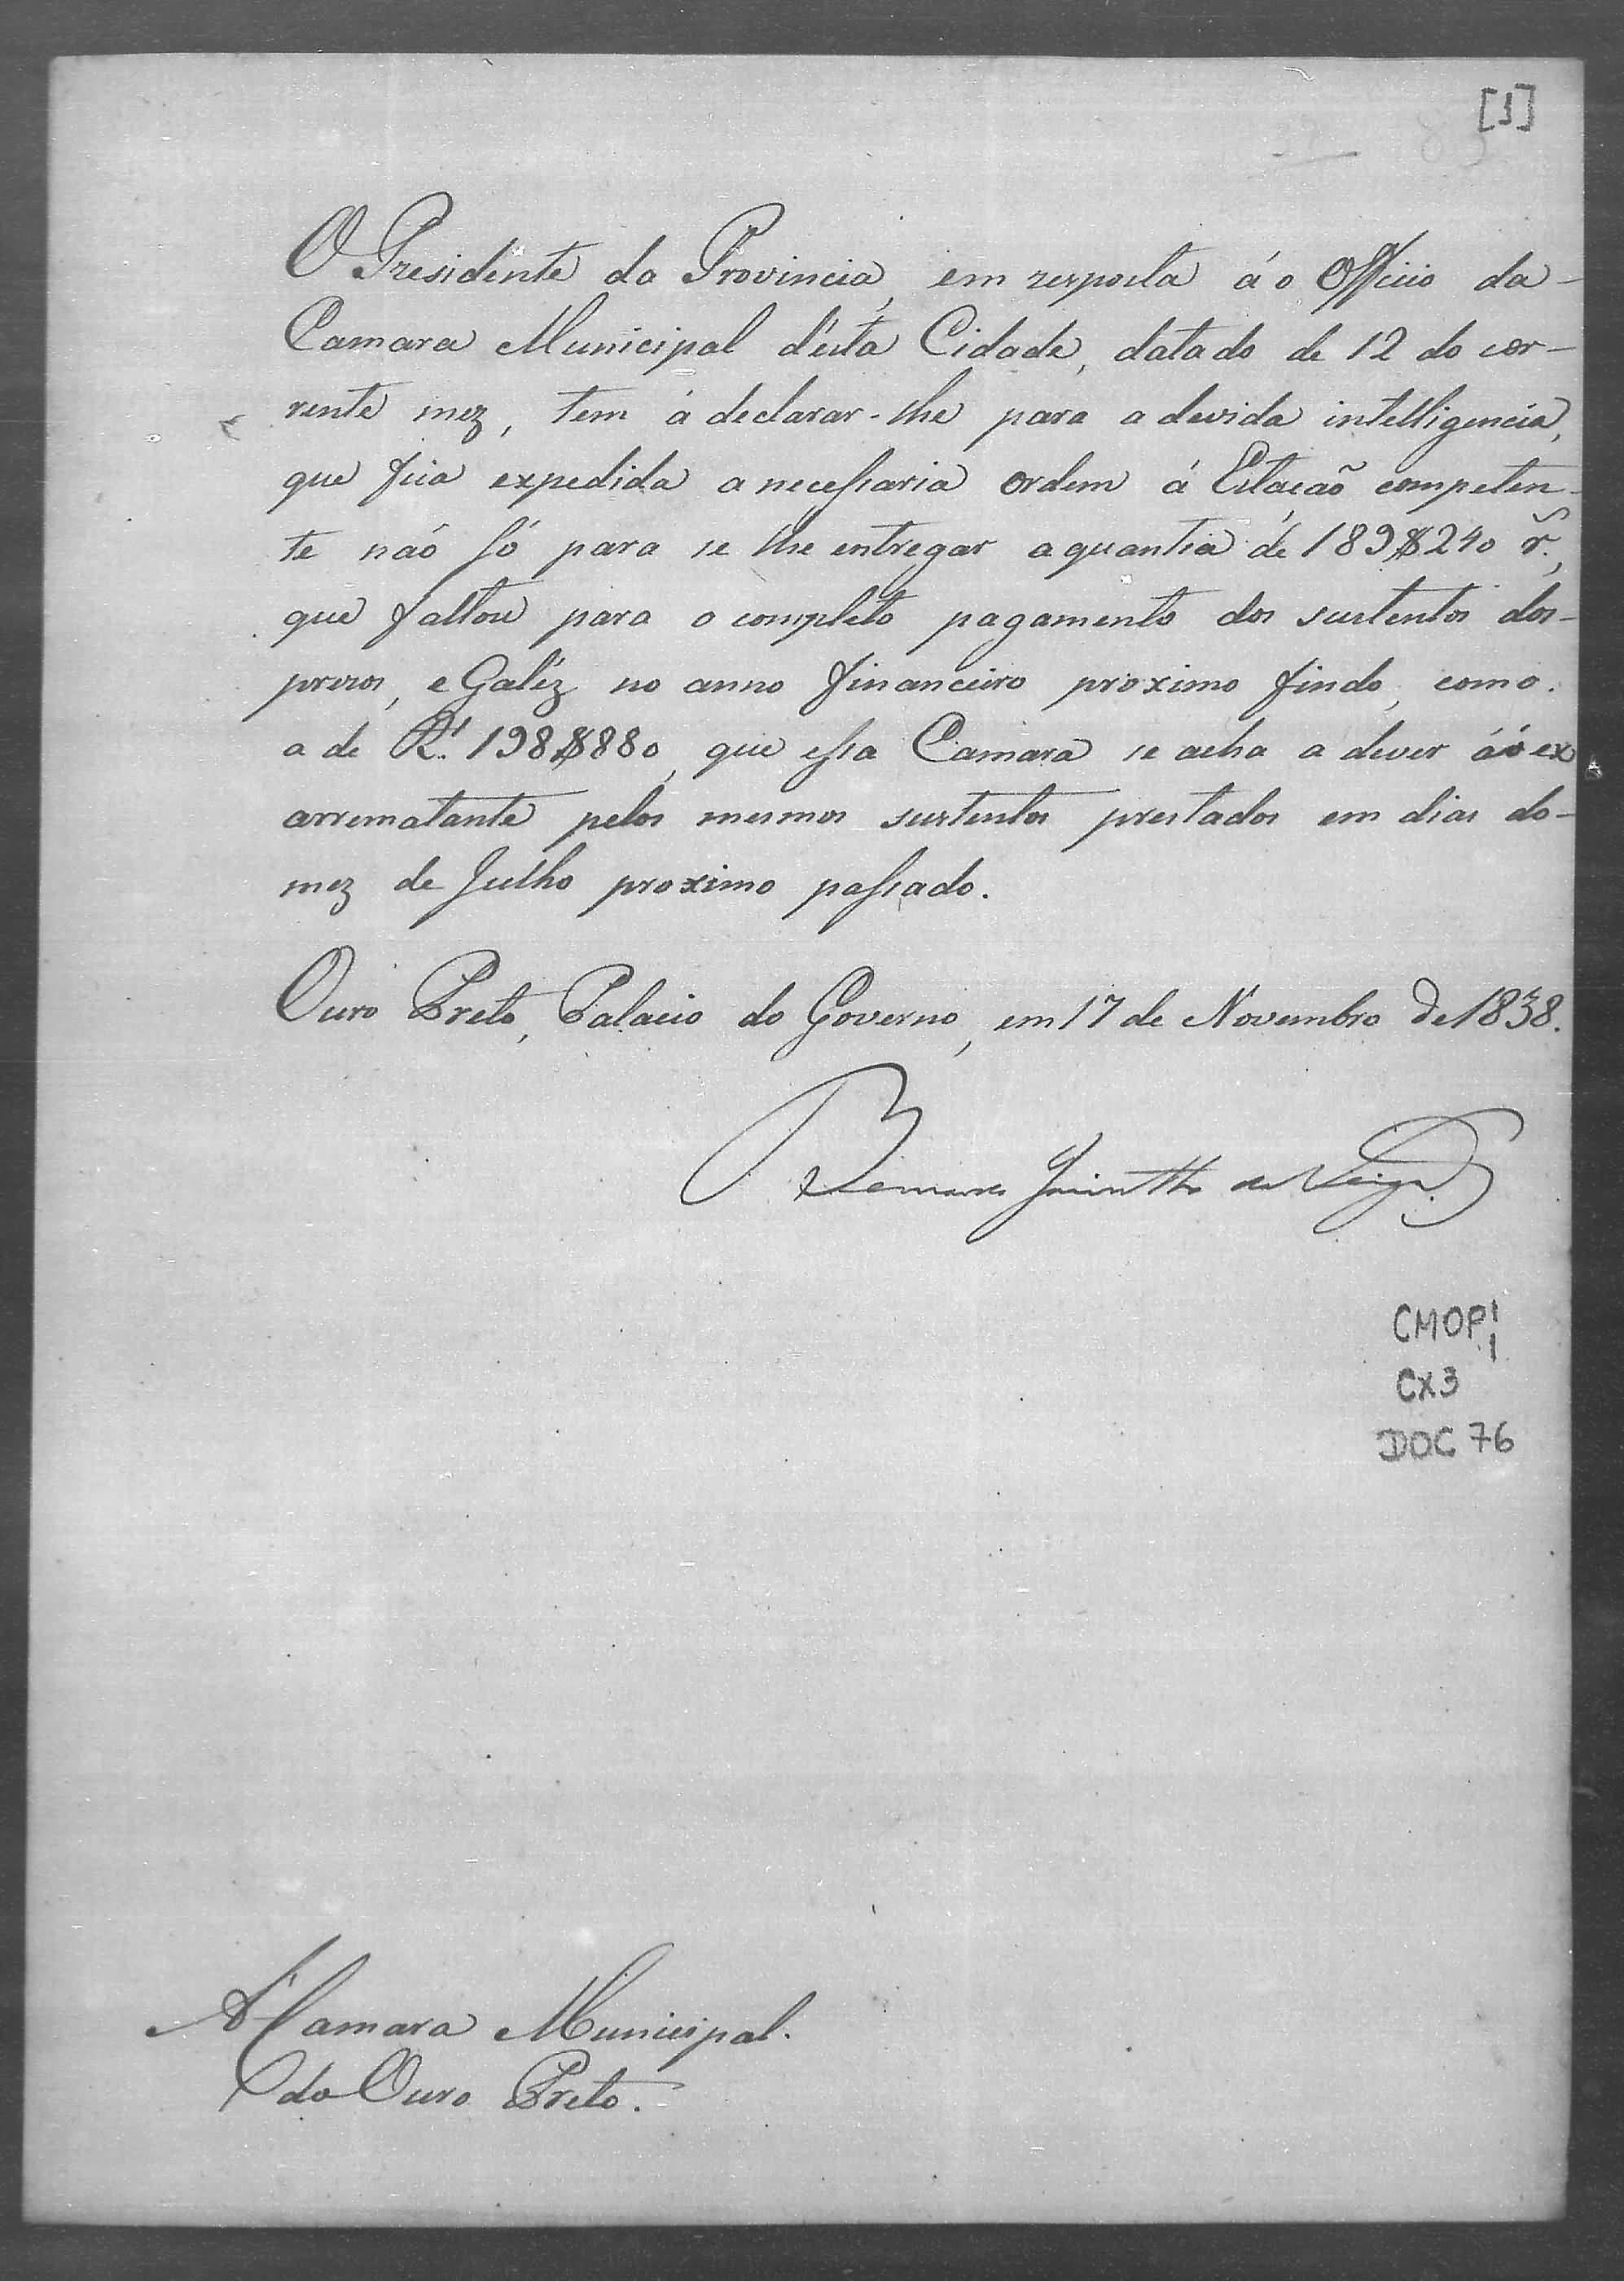 [1]
O Presidente da Provincia, em resposta á o Officio da
Camara Municipal d'esta Cidade, datado de 12 do cor-
rente mez, tem á declarar-lhe para a devida intelligencia,
que fica expedida a necessaria ordem á Estação competen-
te não só para se lhe entregar a quantia de 189$240 r.^s,
que faltou para o completo pagamento dos sustentos dos
prezos, e Galéz no anno financeiro proximo findo, como
a de R.^s 198$880, que essa Camara se acha a dever áo ex
arrematante pelos mesmos sustentos prestados em dias do
mez de Julho proximo passado.
Ouro Preto, Palacio do Governo, em 17 de Novembro de 1838.
Bernardo Jacintho da Veiga
CMOP
CX3
DOC 76
A' Camara Municipal
do Ouro Preto.